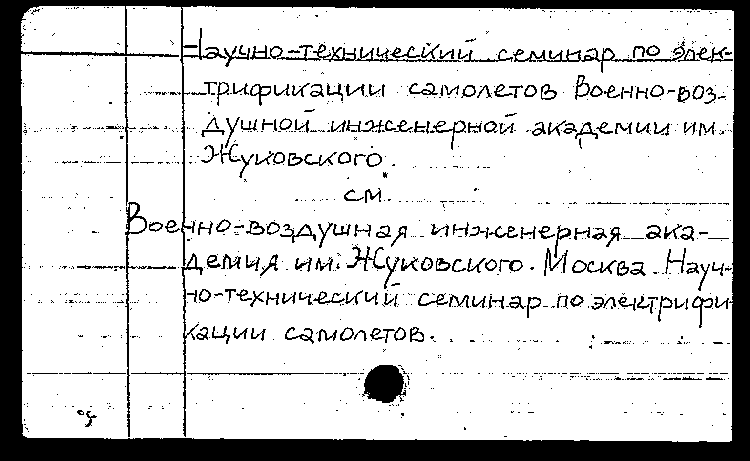 Научно-технический семинар по элек-
трификации самолетов Военно-воз-
душной инженерной академии им.
Жуковского.
см.
Военно-воздушная инженерная ака-
демия им. Жуковского. Москва. Науч-
но-технический семинар по электрифи
кации самолетов.